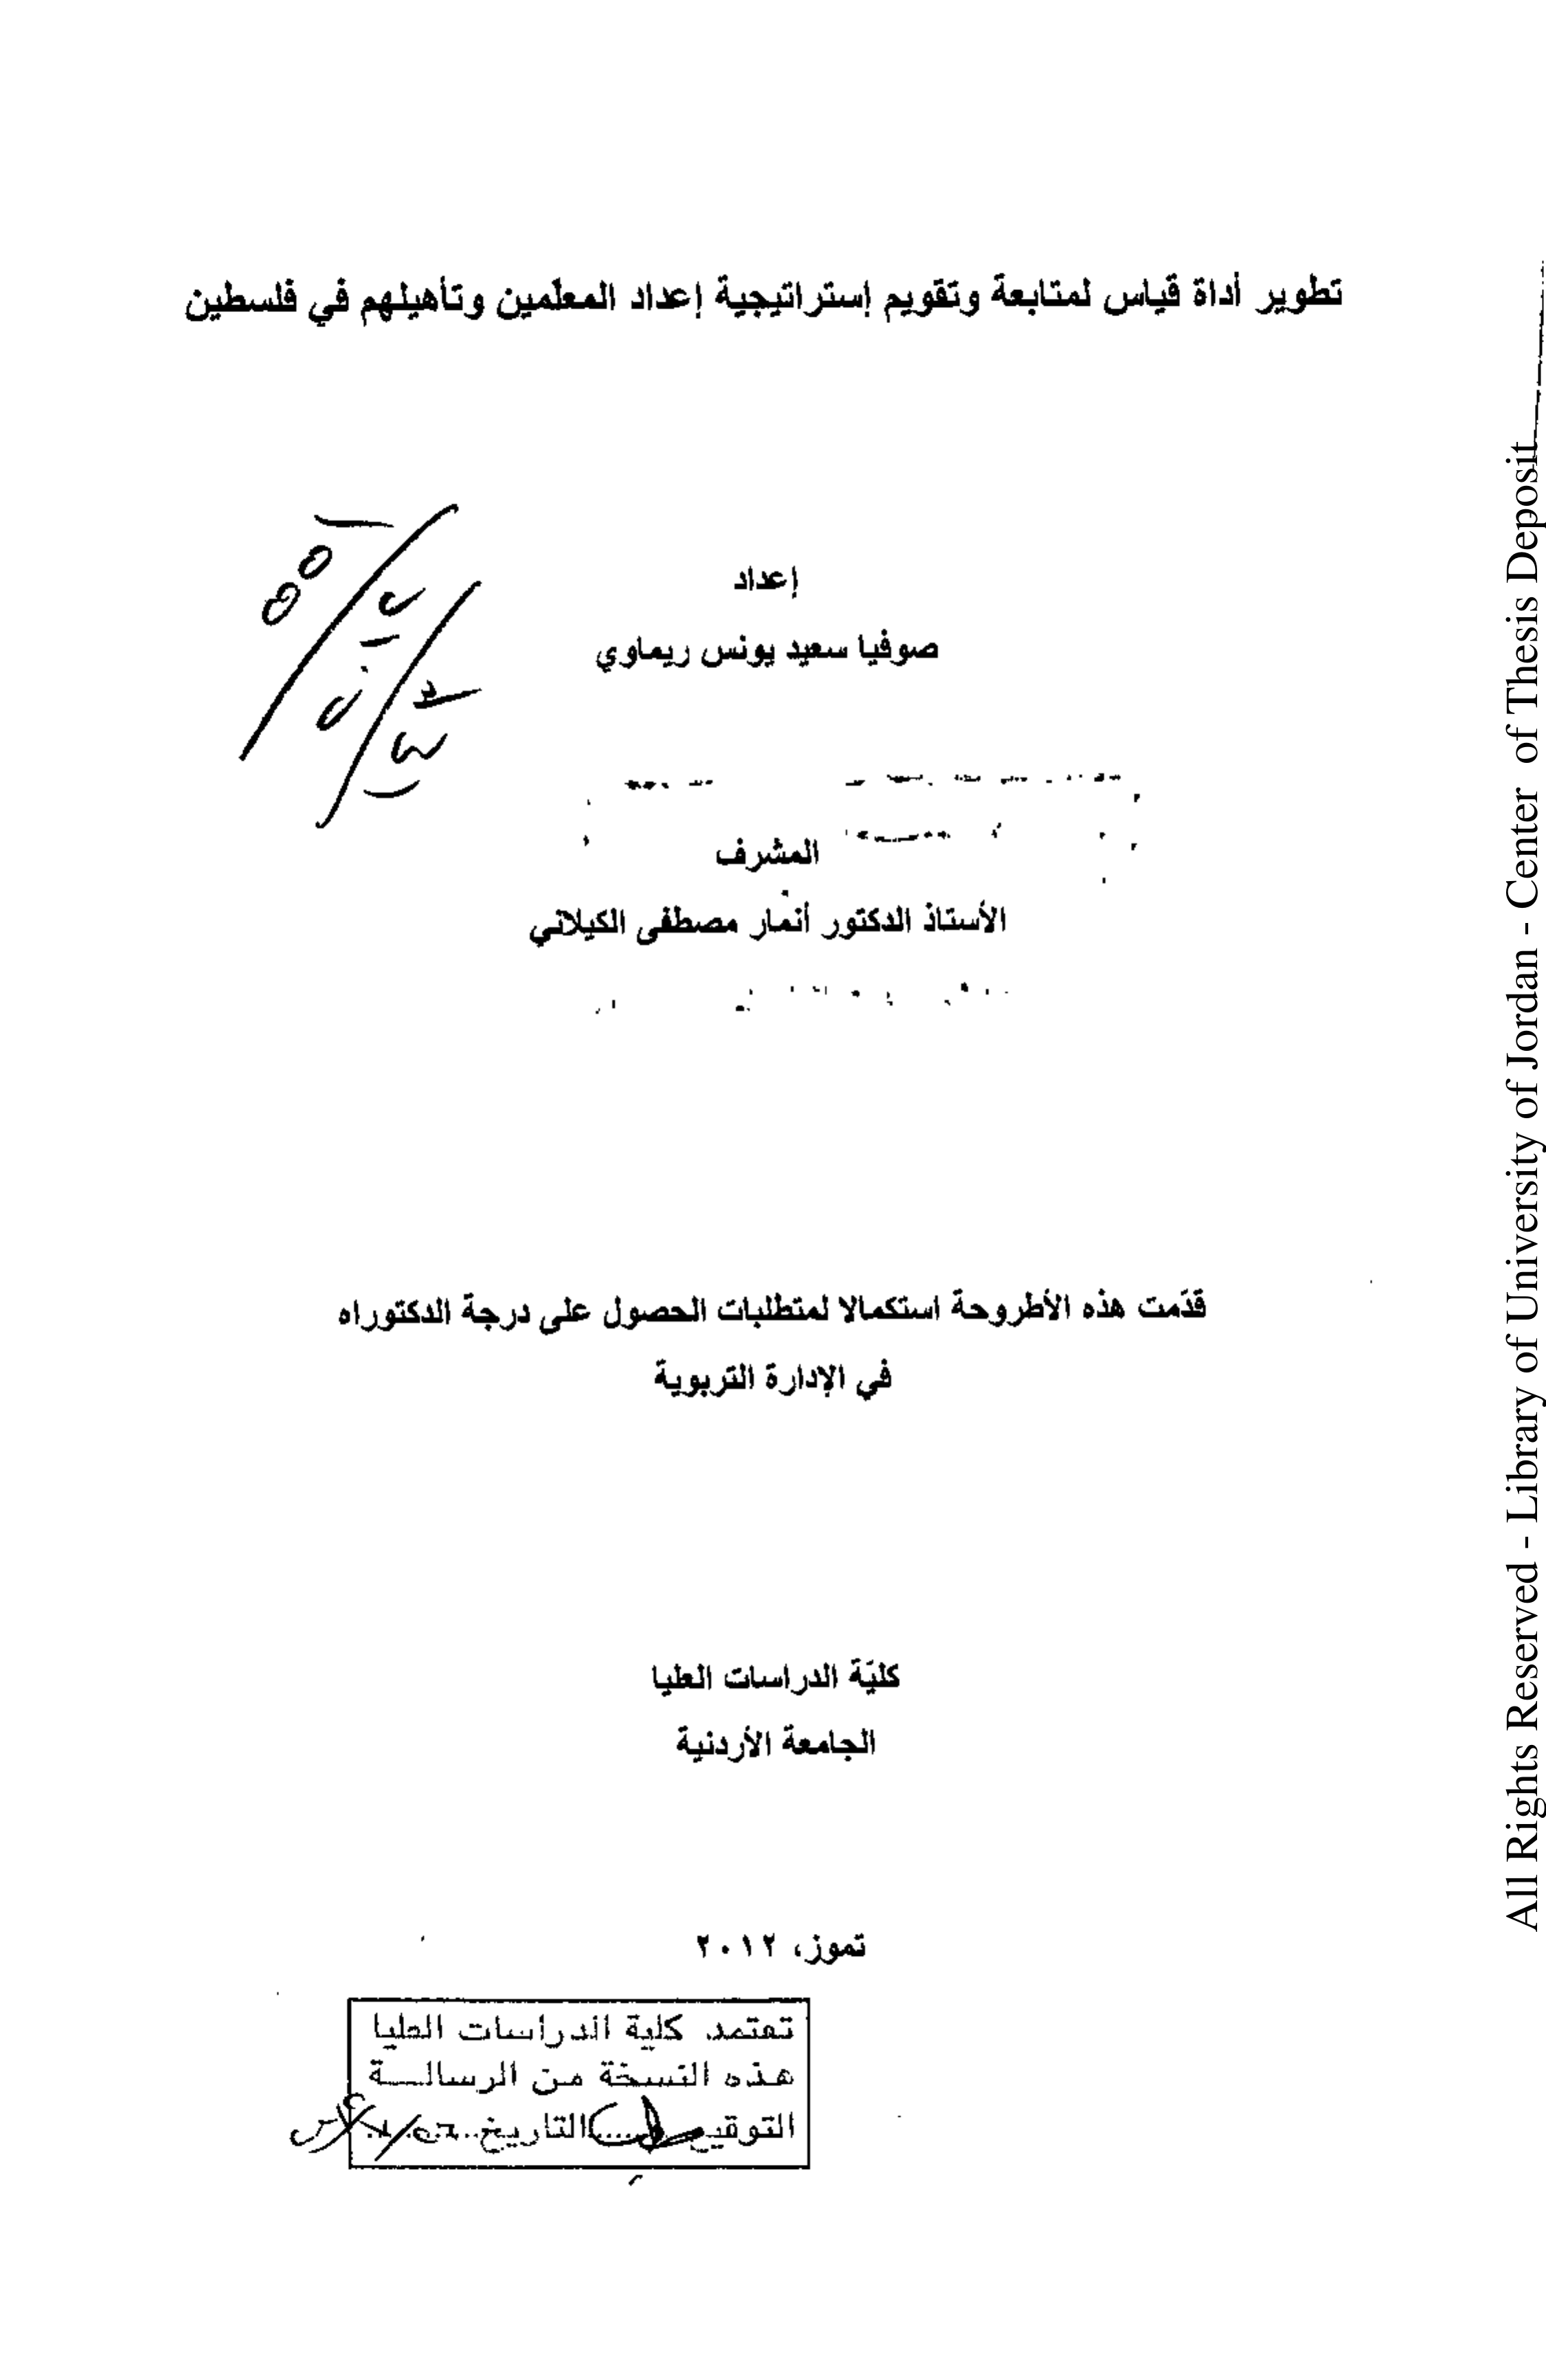 تطوير أداة قياس لمتابعة وتقويم إستراتيجية إعداد المعلّمين وتأهيلهم في فلسطين
إعداد
صوفيا سعيد يونس ريماوي
المشرف
الأستاذ الدكتور أنمار مصطفى الكيلاني
قدّمت هذه الأطروحة استكمالا لمتطلبات الحصول على درجة الدكتوراه
في الإدارة التربوية
كليّة الدراسات العليا
الجامعة الأردنية
تموز، ٢٠١٢
تعتمد كلية الدراسات العليا
هذه النسخة من الرسالــة
التوقيع......التاريخ......
All Rights Reserved - Library of University of Jordan - Center of Thesis Deposit